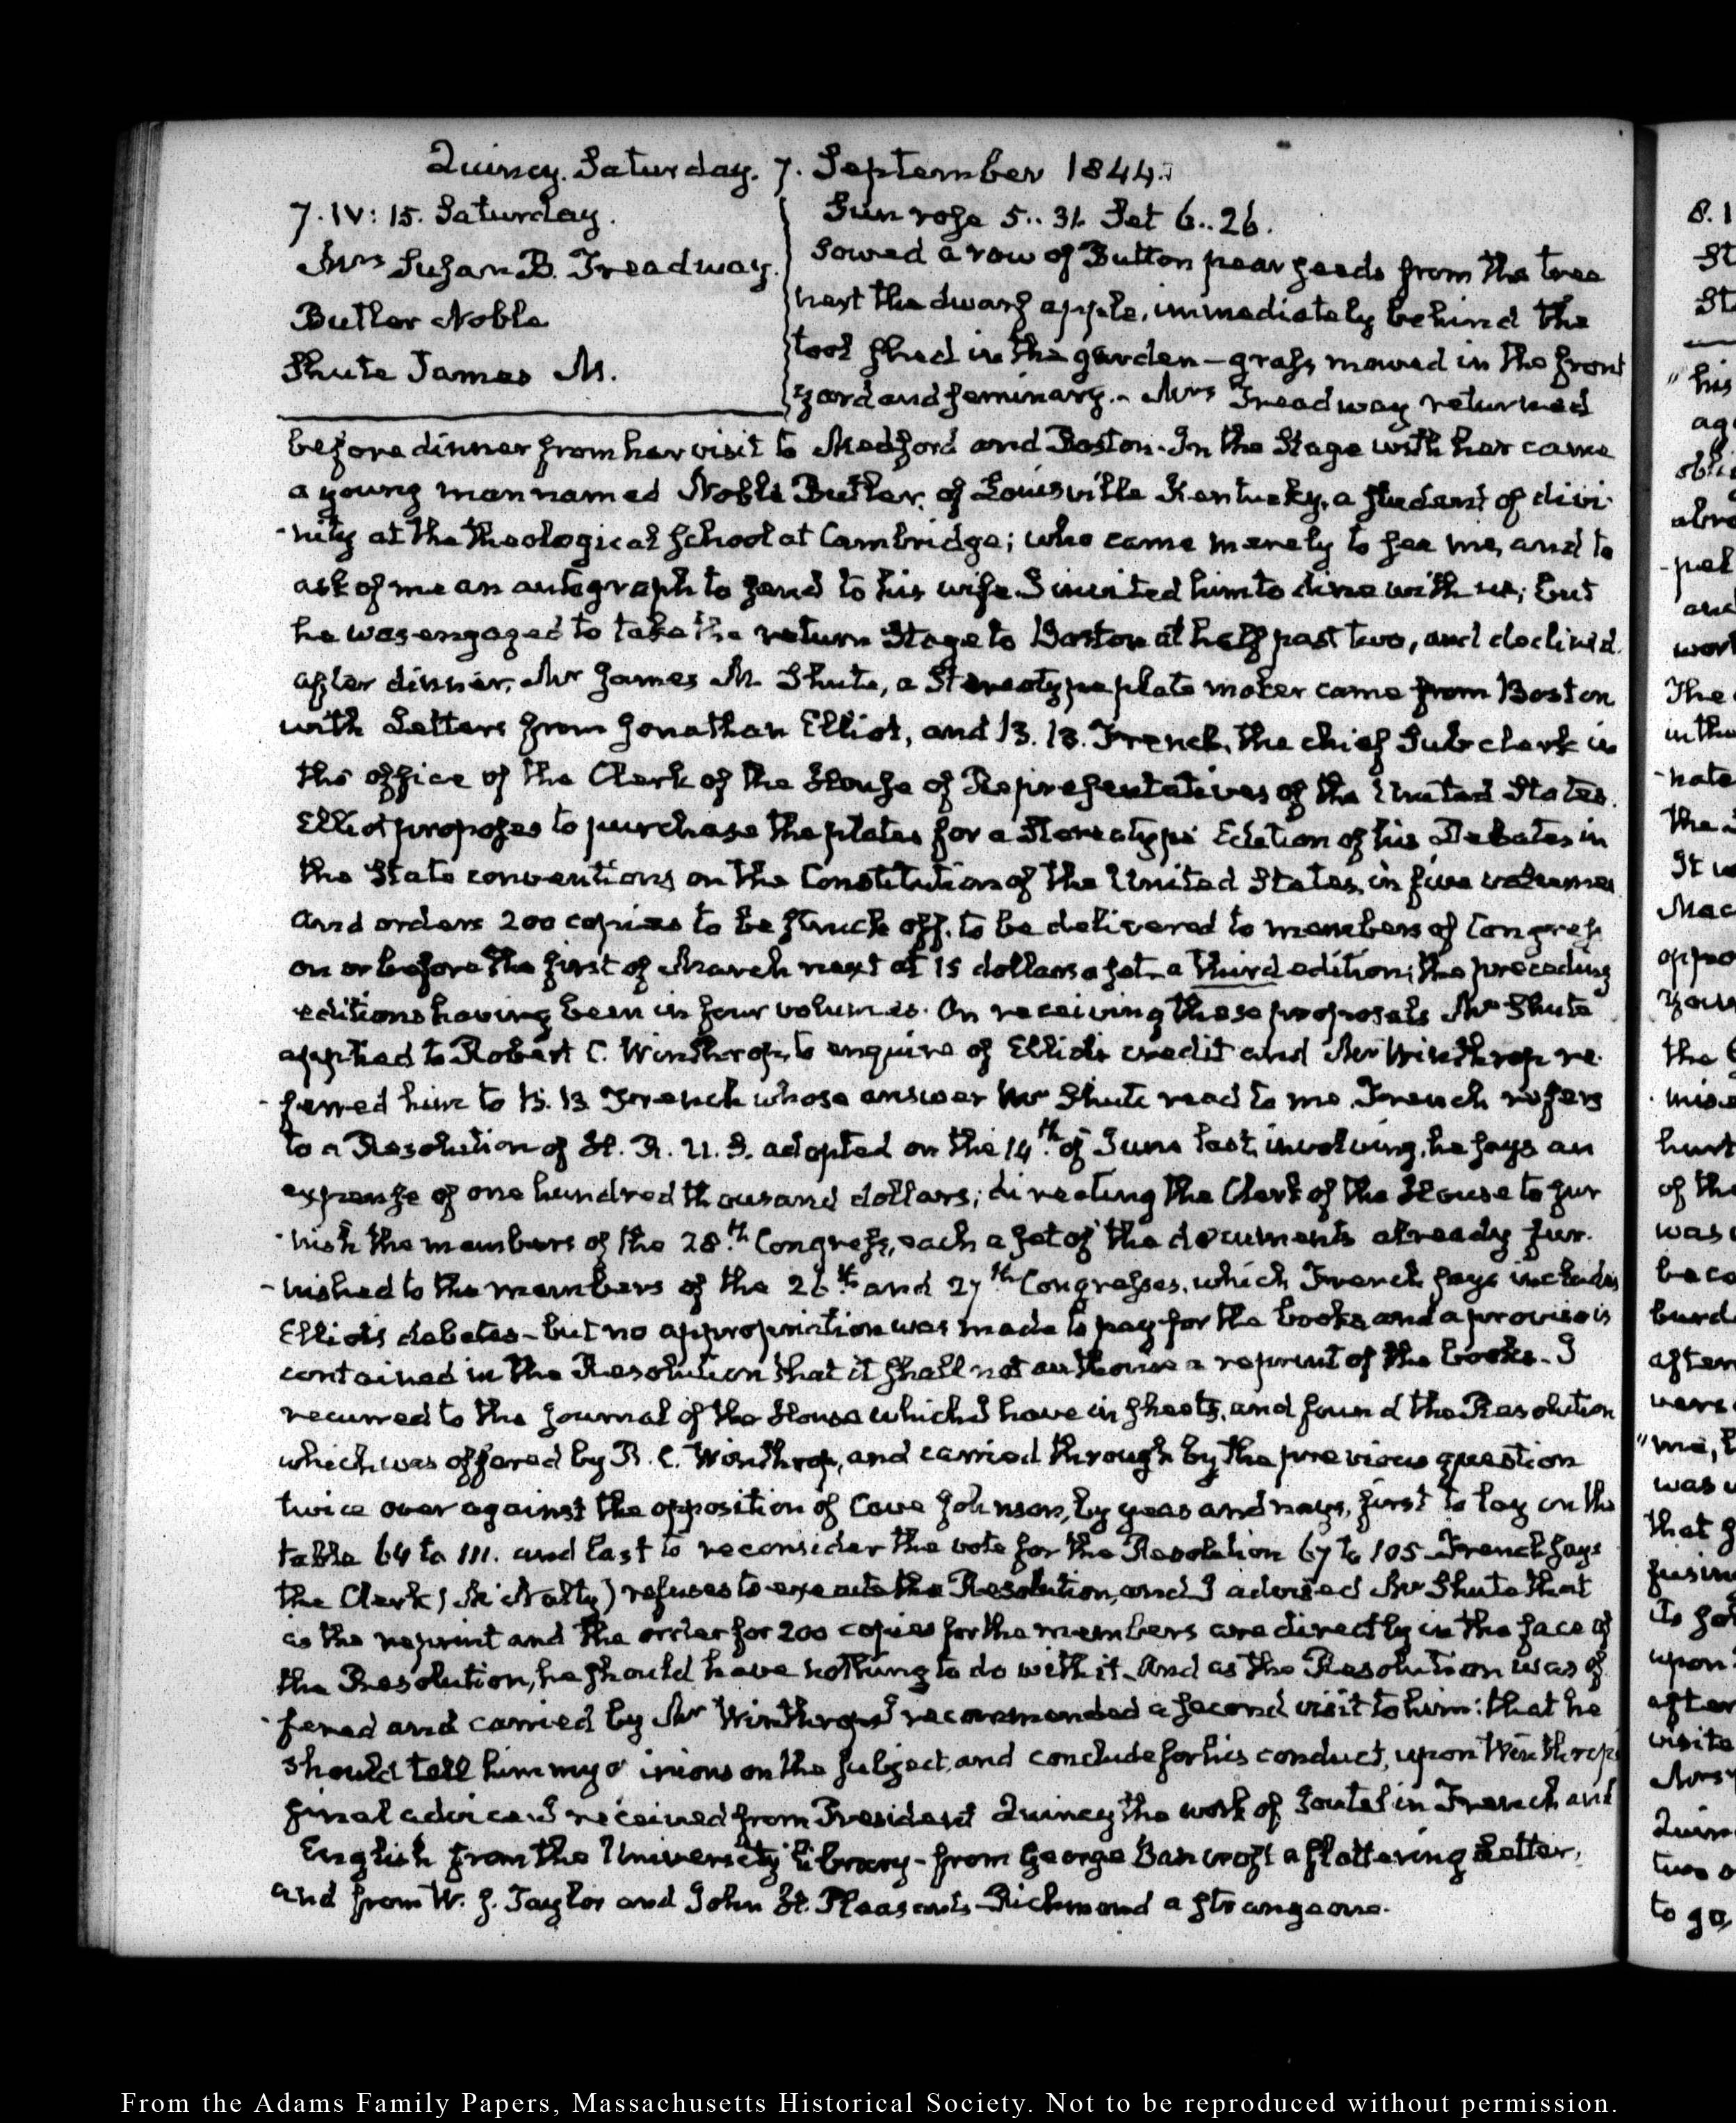 Quincy. Saturday. 7. September 1844.
7. IV: 15. Saturday.
Mrs Susan B. Treadway.
Butler Noble
Shute James M.
Sun rose 5..31. Set 6..26.
Sowed a row of Button pear seeds from the tree
next the dwarf apple, immediately behind the
tool shed in the garden — grass mowed in the front
yard and seminary. — Mrs Treadway returned
before dinner from her visit to Medford and Boston. In the Stage with her came
a young man named Noble Butler, of Louisville Kentucky, a student of divi-
-nity at the theological school at Cambridge; who came merely to see me, and to
ask of me an autograph to send to his wife. I invited him to dine with us; but
he was engaged to take the return Stage to Boston at half past two, and declined.
after dinner, Mr James M. Shute, a Stereotype plate maker came from Boston
with Letters from Jonathan Elliot, and B. B. French, the chief Sub clerk in
the office of the Clerk of the House of Representatives of the United States.
Elliot proposes to purchase the plates for a Stereotype Edition of his Debates in
the State conventions on the Constitution of the United States, in five volumes
and orders 200 copies to be struck off, to be delivered to members of Congress
on or before the first of March next at 15 dollars a set — a third edition; the preceding
editions having been in four volumes. On receiving these proposals Mr Shute
applied to Robert C. Winthrop, to enquire of Elliot's credit and Mr Winthrop re-
-ferred him to B. B. French whose answer Mr Shute read to me. French refers
to a Resolution of H. R. U. S. adopted on the 14th of June last, involving, he says an
expense of one hundred thousand dollars; directing the Clerk of the House to fur
-nish the members of the 28th Congress, each a set of the documents already fur-
-nished to the members of the 26th and 27th Congresses, which French says includes
Elliot's debates — but no appropriation was made to pay for the books and a proviso is
contained in the Resolution that it shall not authorise a reprint of the books — I
recurred to the Journal of the House which I have in sheets, and found the Resolution
which was offered by R. C. Winthrop, and carried through by the previous question
twice over against the opposition of Cave Johnson, by yeas and nays, first to lay on the
table 64 to 111. and last to reconsider the vote for the Resolution 67 to 105 — French says
the Clerk (McNulty) refuses to execute the Resolution, and I advised Mr Shute that
as the reprint and the order for 200 copies for the members are directly in the face of
the Resolution, he should have nothing to do with it. And as the Resolution was of-
-fered and carried by Mr Winthrop I recommended a second visit to him: that he
should tell him my opinions on the subject, and conclude for his conduct, upon Winthrop's
final advice. I received from President Quincy the work of Joutel in French and
English from the University Library — from George Bancroft a flattering Letter,
and from W. J. Taylor and John H. Pleasants — Richmond a strange one.
8. 1
St
St
"his
ag
obli
abro
-pel
and
wor
The
in the
-nate
the
It w
Mac
oppo
you
the
mis
hurt
of the
was
beco
burd
after
were
"me,
was
that
upon
after
visite
Mrs
Quin
two
to go,
From the Adams Family Papers, Massachusetts Historical Society. Not to be reproduced without permission.